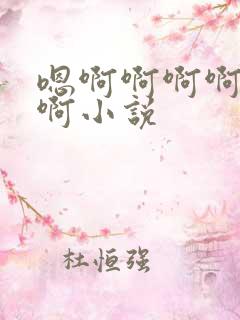 嗯啊啊啊啊
啊小说
杜恒强